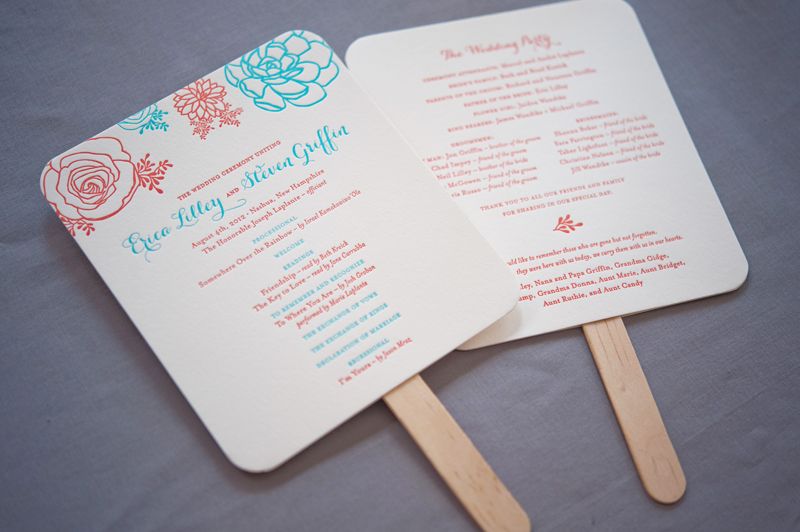 THE WEDDING CEREMONY UNITING
Erica Lilley AND Steven Griffin
August 4th, 2012 • Nashua, New Hampshire
The Honorable Joseph Laplante – officiant
PROCESSIONAL
Somewhere Over the Rainbow – by Israel Kamakawiwo Ole
WELCOME
READINGS
Friendship – read by Beth Kreick
The Key to Love – read by Jane
TO REMEMBER AND RECOGNIZE
To Where You Are – by Josh Groban
performed by Maria Laplante
THE EXCHANGE OF VOWS
THE EXCHANGE OF RINGS
DECLARATION OF MARRIAGE
RECESSIONAL
I'm Yours – by Jason Mraz
The Wedding Party
CEREMONY ATTENDANTS: and Andre Laplante
BRIDE'S FAMILY: Beth and Brent Kreick
PARENTS OF THE GROOM: Richard and Griffin
FATHER OF THE BRIDE: Eric Lilley
FLOWER GIRL: Jordan Wandtke
RING BEARER: James Wandtke • Michael Griffin
GROOMSMEN:
MAN: Jon Griffin – brother of the groom
– friend of the groom
Neil Lilley – brother of the bride
McGowen – friend of the groom
– friend of the groom
BRIDESMAIDS:
Shawna Baker – friend of the bride
– friend of the bride
– friend of the bride
Christine Nelson – friend of the bride
Jill Wandtke – cousin of the bride
THANK YOU TO ALL OUR FRIENDS AND FAMILY
FOR SHARING IN OUR SPECIAL DAY.
ld like to remember those who are gone but not forgotten.
they were here with us today, we carry them with us in our hearts.
ley, Nana and Papa Griffin, Grandma Gidge,
mp, Grandma Donna, Aunt Marie, Aunt Bridget,
Aunt Ruthie, and Aunt Candy